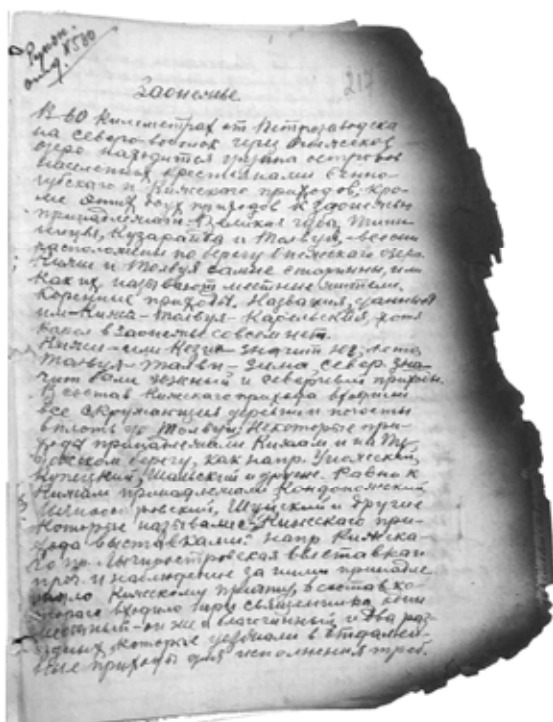 Рукоп.
отд. №500
217
Заонежье.
В 60 километрах от Петрозаводска
на северо-восток через Онежское
озеро находится группа островов
населенных крестьянами Сенно-
губского и Кижского приходов, кро-
ме этих двух приходов к Заонежью
принадлежали Великая губа, Типи-
ницы, Кузаранда и Толвуя, - все они
расположены по берегу Онежского озера.
Кижи и Толвуя самые старинные, или
как их называют местные жители,
коренные приходы. Названия, данные
им - Кижи - Толвуя - Карельския, хотя
карел в Заонежьи совсем нет.
Кижи - или Кезик - значит юг, лето
Толвуя - Талви - зима, север, зна-
чит были южный и северный приходы.
В состав Кижского прихода входили
все окружающия деревни и погосты
вплоть до Толвуи; Некоторые при-
хода принадлежали Кижам и на Пу-
дожском берегу, как напр. Унойский,
Купецкий, Шальский и другие. Равно к
Кижам принадлежали Кондопожский
Лычноостровский, Шуйский и другие
которые назывались Кижского при-
хода выставками: напр Кижска-
го пр. Лычноостровская выставка и
проч. и наблюдение за ними принадле
жало Кижскому причту, в состав ко-
тораго входило три священника, один
местный - он же и благочинный и два раз-
ъездных, которые уезжали в отдален-
ные приходы для исполнения треб.